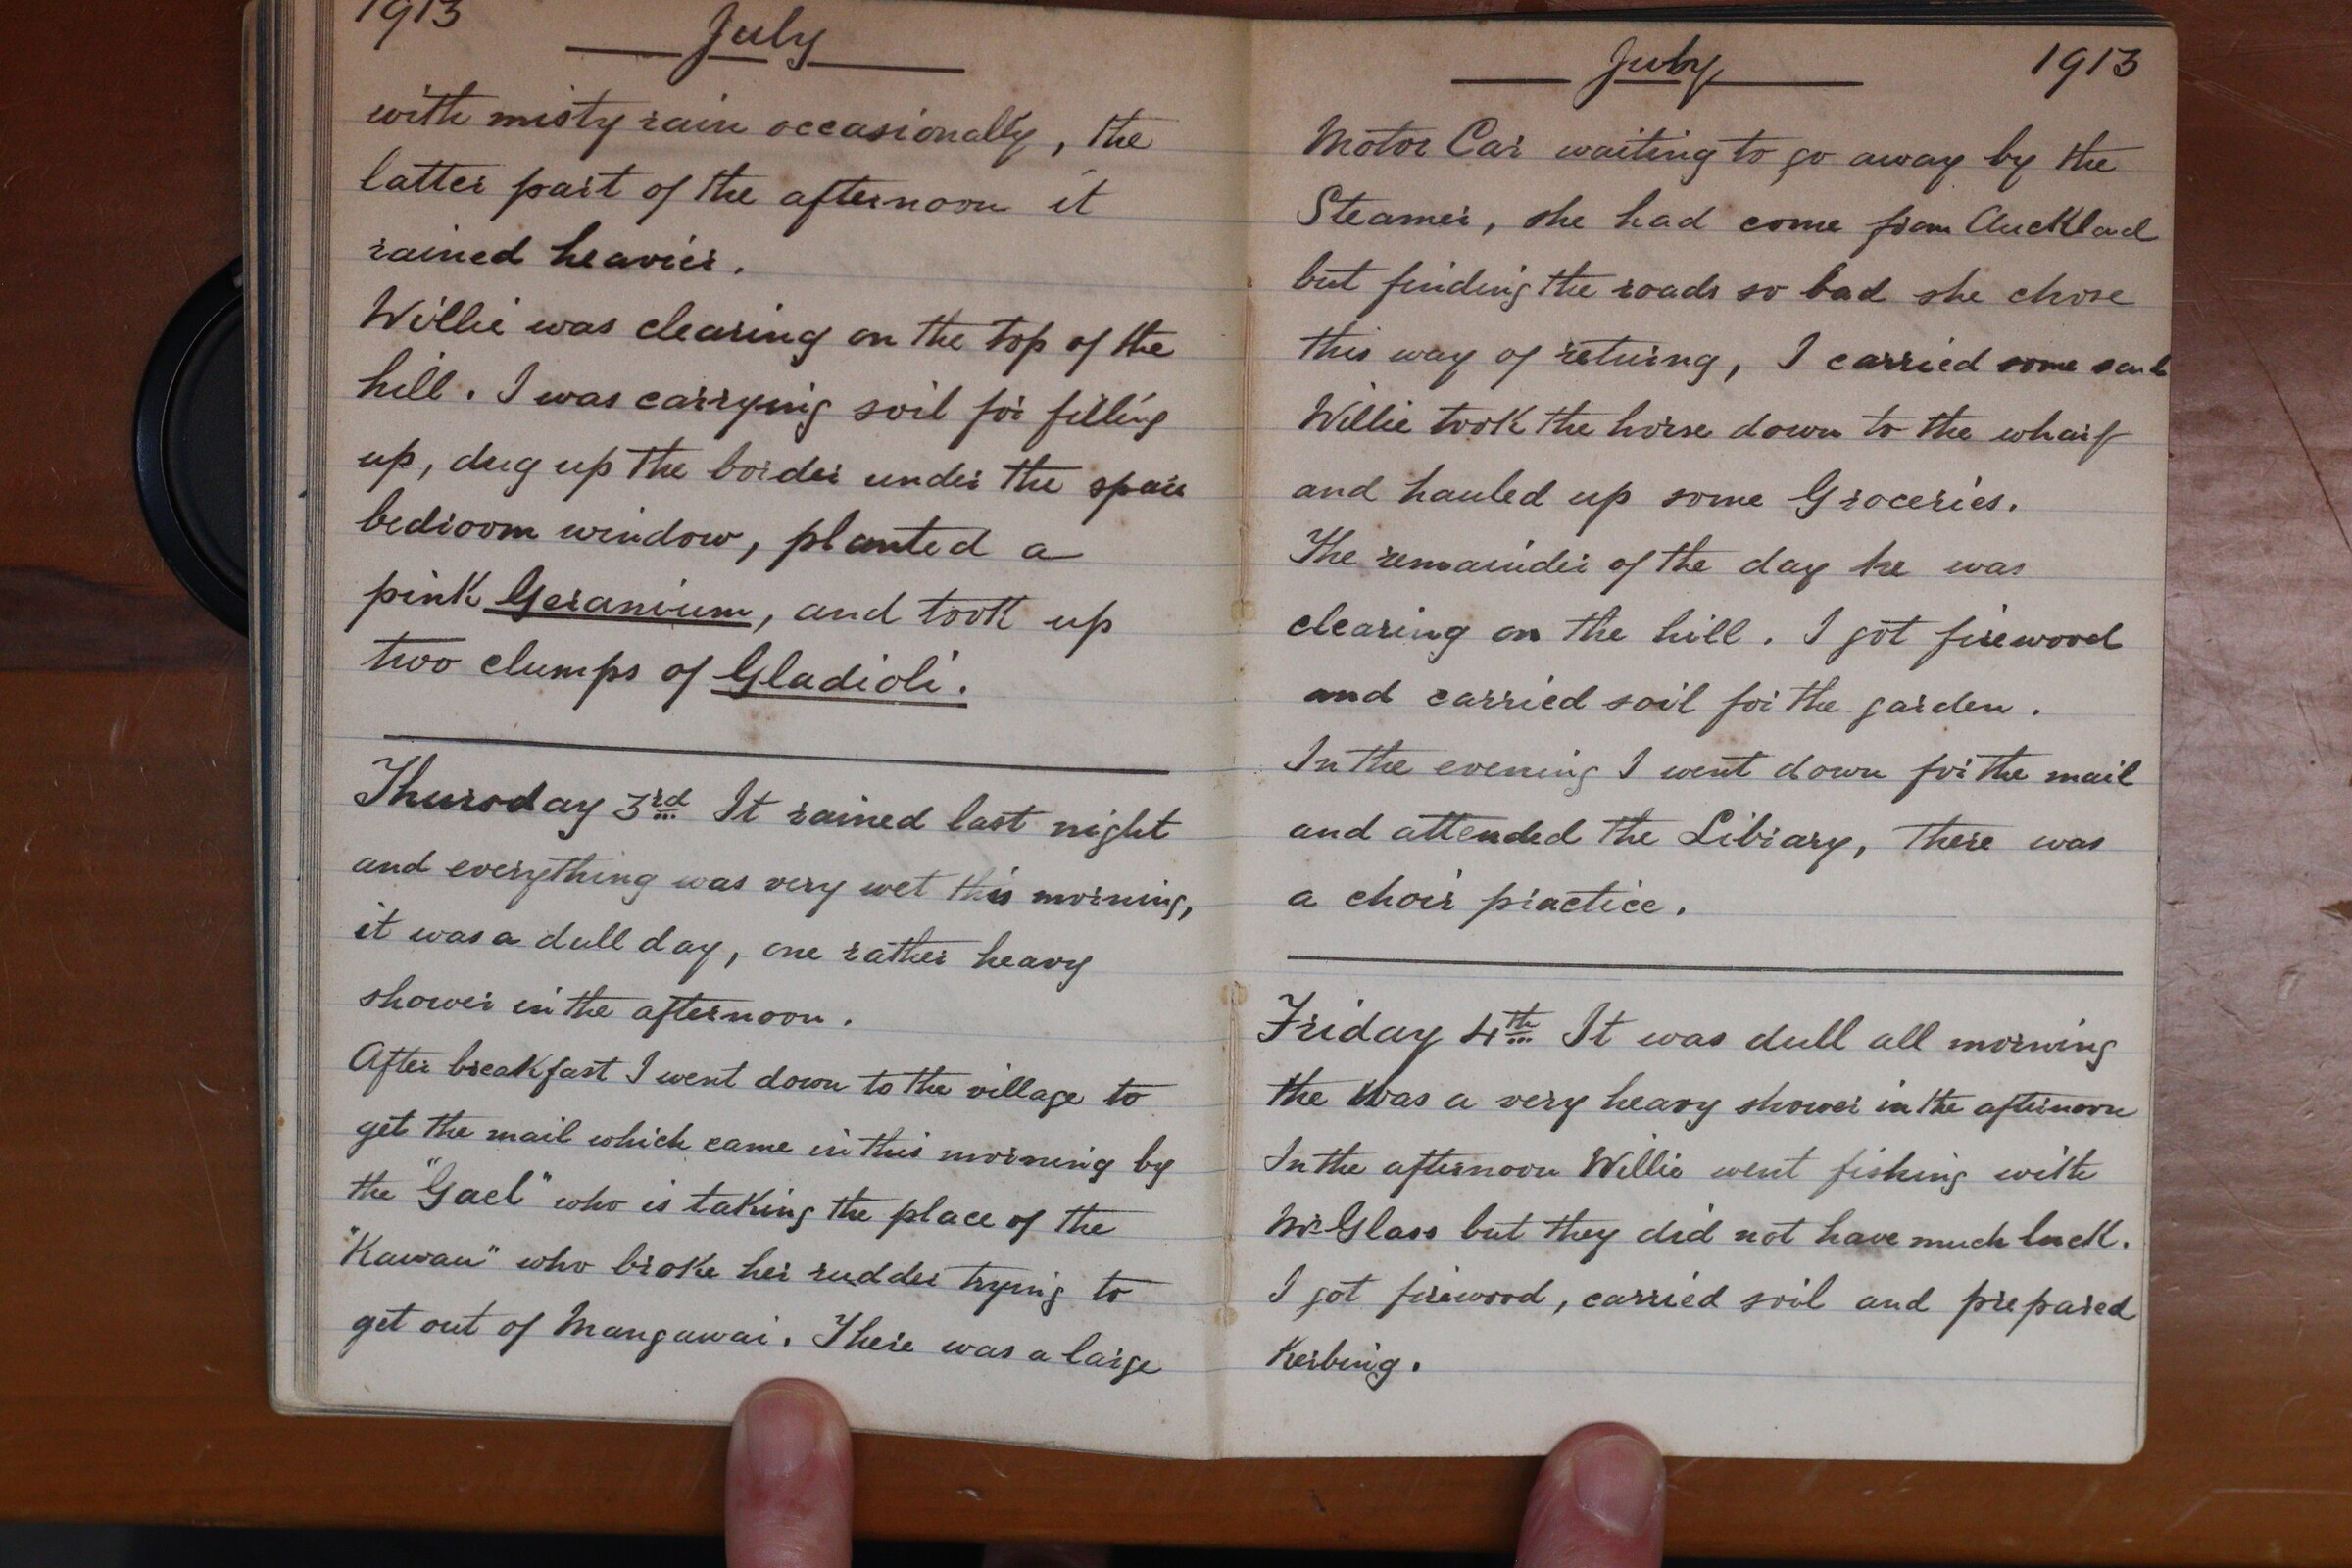 1913 July
with misty rain occasionally, the
latter part of the afternoon it
rained heavier.
Willie was clearing on the top of the
hill. I was carrying soil for filling
up, dug up the border under the spare
bedroom window, planted a
pink Geranium, and took up
two clumps of Gladioli.
Thursday 3rd It rained last night
and everything was very wet this morning,
it was a dull day, one rather heavy
shower in the afternoon.
After breakfast I went down to the village to
get the mail which came in this morning by
the "Gael" who is taking the place of the
"Kawau" who broke her rudder trying to
get out of Mangawai. There was a large
July 1913
Motor Car waiting to go away by the
Steamer, she had come from Aucklad
but finding the roads so bad she chose
this way of returing, I carried some
Willie took the horse down to the wharf
and hauled up some Groceries.
The remainder of the day he was
clearing on the hill. I got firewood
and carried soil for the garden.
In the evening I went down for the mail
and attended the Library, there was
a choir practice.
Friday 4th It was dull all morning
the was a very heavy shower in the afternoon
In the afternoon Willie went fishing with
Mr Glass but they did not have much luck.
I got firewood, carried soil and prepared
Kerbing.